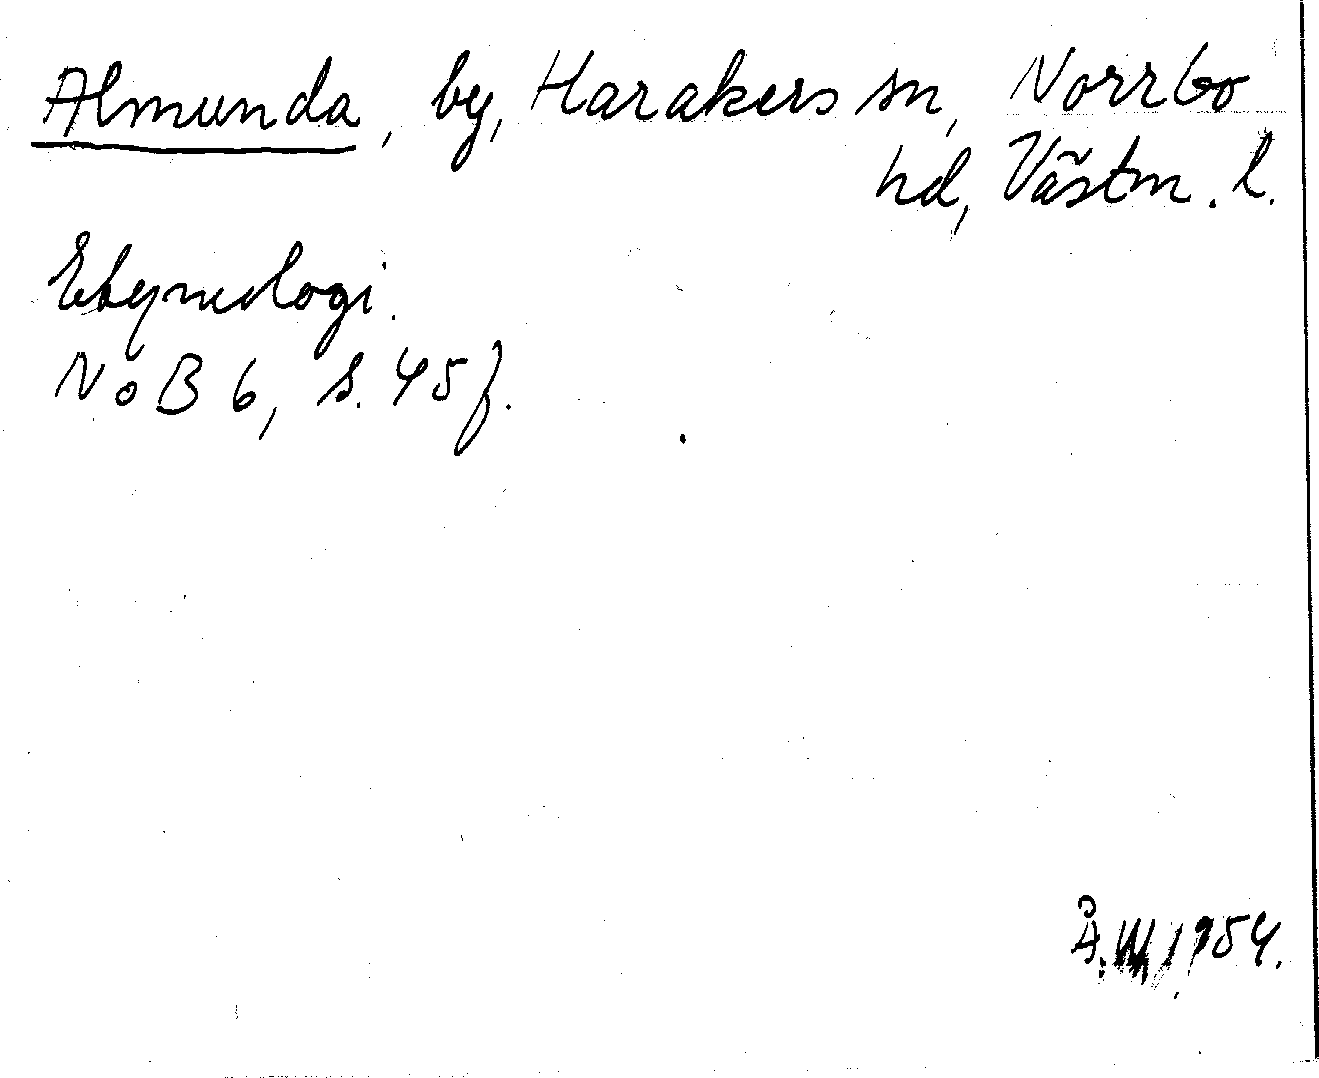 Almunda, by, Harakers sn, Norrbo
hd, Västm. l.
Etymologi.
NoB 6, s. 45 f.
1954.